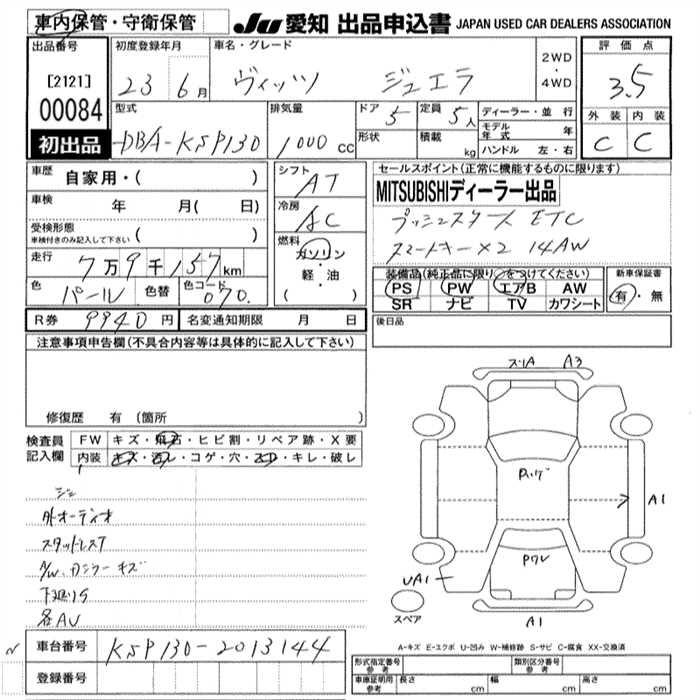 車内保管・守衛保管
JU 愛知 出品申込書 JAPAN USED CAR DEALERS ASSOCIATION
出品番号
[2121]
00084
初出品
初度登録年月
23年6月
車名・グレード
ヴィッツ ジュエラ
2WD・4WD
評価点
3.5
外装 内装
C C
型式
DBA-KSP130
排気量
1000cc
ドア 5
定員 5人
形状
積載 kg
ディーラー・並行
モデル年式 年
ハンドル 左・右
車歴
自家用・( )
車検 年 月( 日)
受検形態
車検付きのみ記入して下さい ( )
走行 7万9千157km
色 パール 色替 色コード 070
シフト AT
冷房 AC
燃料
ガソリン・軽・油
( )
R券 9940円 名変通知期限 月 日
セールスポイント(正常に機能するものに限ります)
MITSUBISHIディーラー出品
プッシュスタート ETC
スマートキー×2 14AW
装備品(純正品に限り○をつけてください)
PS PW エアB AW
SR ナビ TV カワシート
新車保証書
有・無
後日品
注意事項申告欄(不具合内容等は具体的に記入して下さい)
修復歴 有 (箇所 )
検査員記入欄
FW キズ・飛石・ヒビ割・リペア跡・X要
内装 キズ・汚レ・コゲ・穴・スレ・キレ・破レ
外オーディオ
スタッドレスT
A/W、Dミラーキズ
下廻りS
各AU
スリA A3
Pハゲ
A1
Pワレ
UA1
スペア
A1
車台番号 KSP130-2013144
登録番号
A-キズ E-エクボ U-凹み W-補修跡 S-サビ C-腐食 XX-交換済
形式指定番号 参考 類別区分番号 参考
車庫証明用 参考 長さ cm 幅 cm 高さ cm